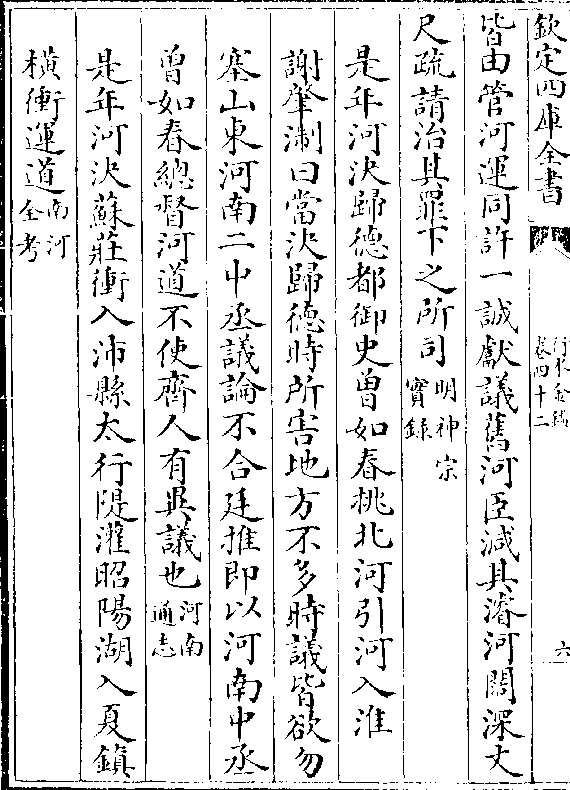 欽定四庫全書
行水金鑑
卷四十二
六
皆由管河運同許一誠獻議舊河臣減其濬河闊深丈
尺疏請治其罪下之所司明神宗實錄
是年河決歸德都御史曾如春挑北河引河入淮
謝肇淛曰當決歸德時所害地方不多時議皆欲勿
塞山東河南二中丞議論不合廷推即以河南中丞
曾如春總督河道不使齊人有異議也河南通志
是年河決蘇莊衝入沛縣太行隄灌昭陽湖入夏鎮
橫衝運道南河全考